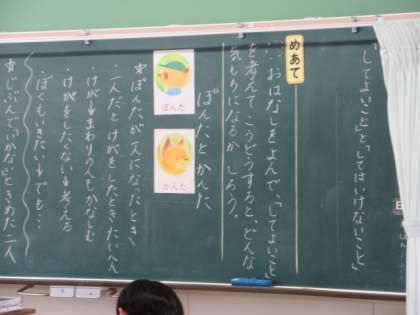 「してよいこと」と、「してはいけないこと」
めあて
おはなしをよんで、「してよいこと」
を考えて こうどうすると、どんな
気もちになるか しろう。
ぽんたと かんた
ぽんた
かんた
☆ぽんたが 一人になったとき
・一人だと けがをしたとき たいへん
・けが→まわりの人も かなしむ
・けがをしたくない→考える
・ぼくも いきたい→でも…
☆じぶんで「いかない」ときめた 二人